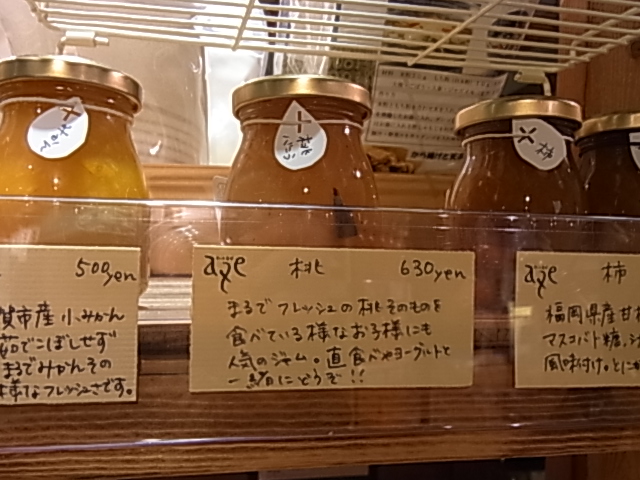 みかん
柿
500yen
賀市産 小みかん
茹でこぼしせず
まるでみかんその
様なフレッシュさです。
axe 桃 630yen
まるでフレッシュの桃そのものを
食べている様なお子様にも
人気のジャム。直食べやヨーグルトと
一緒にどうぞ!!
axe 柿
福岡県産甘柿
マスコバト糖、
風味付け。とにか